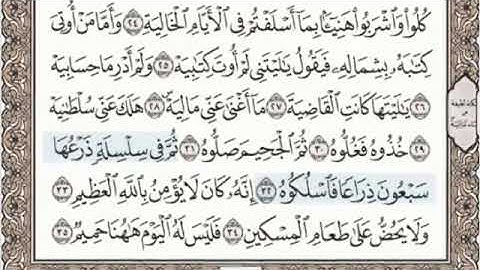 كُلُوا۟ وَٱشْرَبُوا۟ هَنِيٓـًٔۢا بِمَآ أَسْلَفْتُمْ فِى ٱلْأَيَّامِ ٱلْخَالِيَةِ ٢٤ وَأَمَّا مَنْ أُوتِىَ
كِتَٰبَهُۥ بِشِمَالِهِۦ فَيَقُولُ يَٰلَيْتَنِى لَمْ أُوتَ كِتَٰبِيَهْ ٢٥ وَلَمْ أَدْرِ مَا حِسَابِيَهْ
٢٦ يَٰلَيْتَهَا كَانَتِ ٱلْقَاضِيَةَ ٢٧ مَآ أَغْنَىٰ عَنِّى مَالِيَهْ ۜ ٢٨ هَلَكَ عَنِّى سُلْطَٰنِيَهْ
٢٩ خُذُوهُ فَغُلُّوهُ ٣٠ ثُمَّ ٱلْجَحِيمَ صَلُّوهُ ٣١ ثُمَّ فِى سِلْسِلَةٍ ذَرْعُهَا
سَبْعُونَ ذِرَاعًا فَٱسْلُكُوهُ ٣٢ إِنَّهُۥ كَانَ لَا يُؤْمِنُ بِٱللَّهِ ٱلْعَظِيمِ ٣٣
وَلَا يَحُضُّ عَلَىٰ طَعَامِ ٱلْمِسْكِينِ ٣٤ فَلَيْسَ لَهُ ٱلْيَوْمَ هَٰهُنَا حَمِيمٌ ٣٥